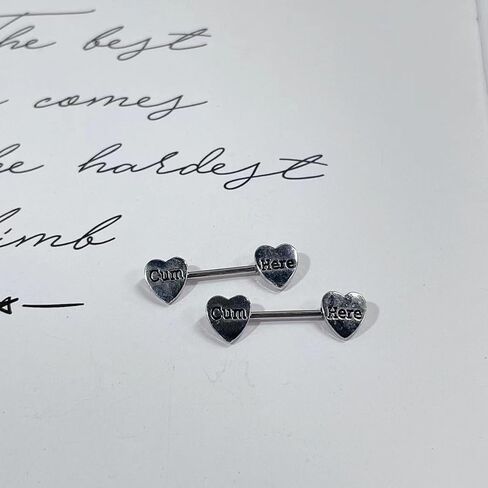 The best
comes
the hardest
climb
Cum Here
Cum Here